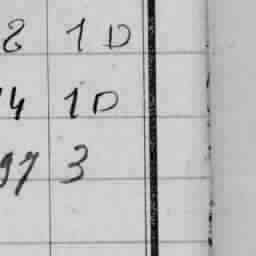 8 1 D
4 1 D
97 3